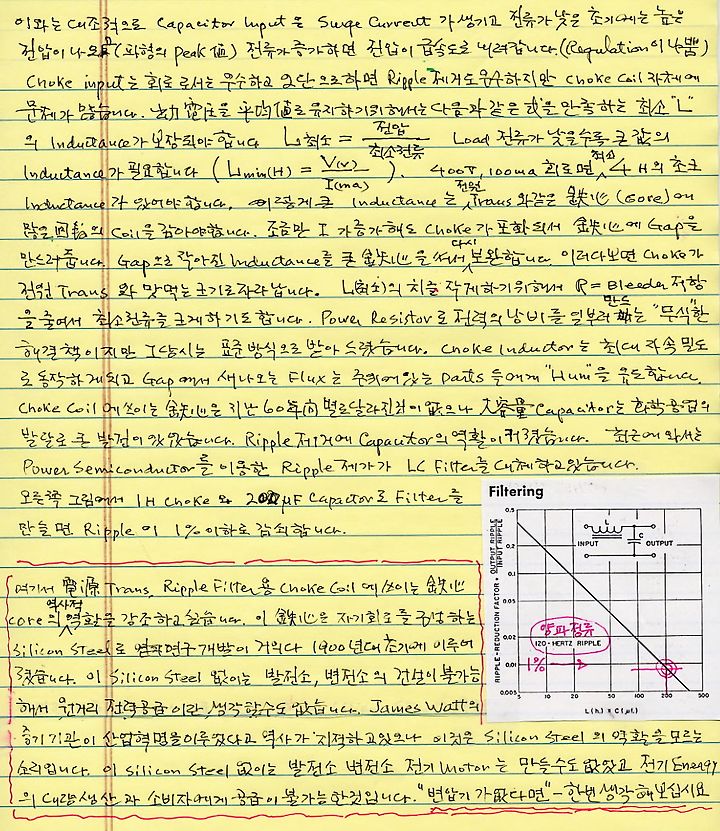 이와는 대조적으로 Capacitor Input은 Surge Current가 생기고 전류가 낮은 초기에는 높은
전압이 나오고 (파형의 Peak 値) 전류가 증가하면 전압이 급속도로 내려갑니다. (Regulation이 나쁨)
Choke input는 회로로서는 우수하고 2단으로하면 Ripple 제거도 우수하지만 Choke Coil 자체에
문제가 많습니다. 出力 電圧을 平均値로 유지하기 위해서는 다음과 같은 式을 만족하는 최소 "L"
의 Inductance가 보장되야 합니다 L최소 = 전압 / 최소전류 Load 전류가 낮을수록 큰 값의
Inductance가 필요합니다 (Lmin(H) = V(v) / I(ma)). 400V, 100ma 회로면 최소 4 H의 초크
Inductance가 있어야 합니다. 이렇게 큰 Inductance는 전원 Trans와 같은 鉄心 (Core)에
많은 回転의 Coil을 감아야합니다. 조금만 I가 증가해도 Choke가 포화되서 鉄心에 Gap을
만드러 줍니다. Gap으로 작아진 Inductance를 큰 鉄心을 써서 다시 보완합니다. 이러다보면 Choke가
전원 Trans와 맞먹는 크기로 자라납니다. L(최소)의 치를 작게하기 위해서 R = Bleeder 저항
을 줘서 최소전류를 크게 하기도 합니다. Power Resistor로 전력의 낭비를 일부러 만드는 "무식"한
해결책이지만 그당시는 표준방식으로 받아드렸습니다. Choke Inductor는 최대 자속밀도
로 동작하게 되고 Gap에서 새나오는 Flux는 주위에 있는 Parts 들에게 "Hum"을 유도합니다.
Choke Coil에 쓰이는 鉄心은 지난 60年間 별로 달라진 것이 없으나 大容量 Capacitor는 화학공업의
발달로 큰 발전이 있었습니다. Ripple 제거에 Capacitor의 역활이 커졌습니다. 최근에 와서는
Power Semiconductor를 이용한 Ripple 제거가 LC Filter를 대체하고 있습니다.
오른쪽 그림에서 1H Choke와 200μF Capacitor로 Filter를
만들면 Ripple이 1% 이하로 감쇠합니다.
Filtering
RIPPLE-REDUCTION FACTOR = OUTPUT RIPPLE / INPUT RIPPLE
0.5
0.2
0.1
0.05
0.02
0.01
0.005
L
C
INPUT
OUTPUT
양파정류
120-HERTZ RIPPLE
1%
5 10 20 50 100 200 500
L(h.) x C(μf.)
여기서 電源 Trans, Ripple Filter용 Choke Coil에 쓰이는 鉄心
core의 역사적 역활을 강조하고 싶습니다. 이 鉄心은 자기회로를 구성하는
Silicon Steel로 연구개발이 거의다 1900년대 초기에 이루어
졌습니다. 이 Silicon Steel 없이는 발전소, 변전소의 건설이 불가능
해서 원거리 전력공급이란 생각할수도 없습니다. James Watt의
증기기관이 산업혁명을 이루었다고 역사가 지적하고 있으나 이것은 Silicon Steel의 역활을 모르는
소리입니다. 이 Silicon Steel 없이는 발전소 변전소 전기 Motor는 만들수도 없었고 전기 Energy
의 대량생산과 소비자에게 공급이 불가능한것입니다. "변압기가 없다면" - 한번 생각해 보십시요